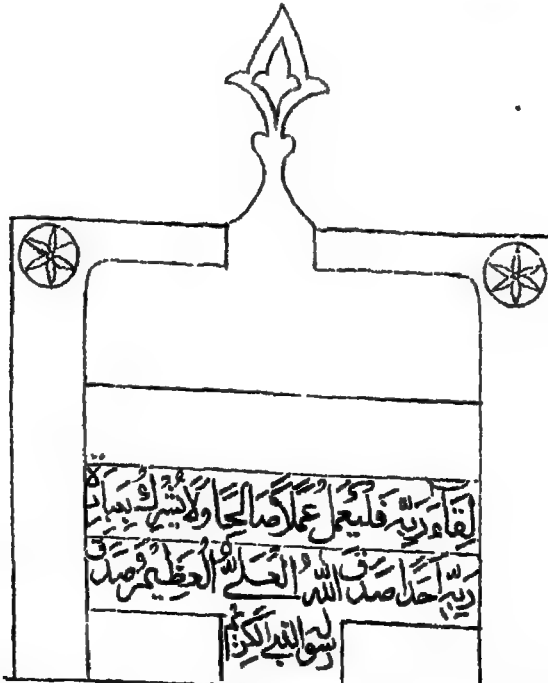 لِقَاءَ رَبِّهِ فَلْيَعْمَلْ عَمَلًا صَالِحًا وَلَا يُشْرِكْ بِعِبَادَةِ
رَبِّهِ أَحَدًا صَدَقَ اللهُ الْعَلِيُّ الْعَظِيمُ وَصَدَقَ
رسوله النبي الكريم